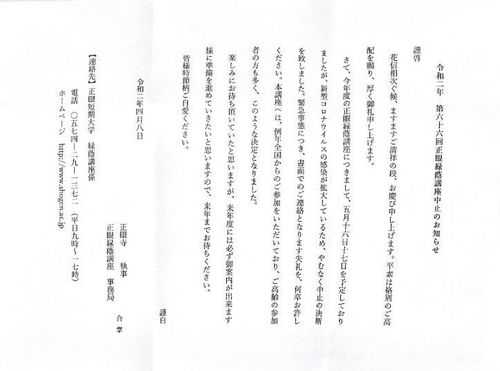 令和二年　第六十六回正眼緑蔭講座中止のお知らせ
謹啓
花信相次ぐ候、ますますご清祥の段、お慶び申し上げます。平素は格別のご高
配を賜り、厚く御礼申し上げます。
さて、今年度の正眼緑蔭講座につきまして、五月十六日十七日を予定しており
ましたが、新型コロナウイルスの感染が拡大しているため、やむなく中止の決断
を致しました。緊急事態につき、書面でのご連絡となります失礼を、何卒お許し
ください。本講座へは、例年全国からのご参加をいただいており、ご高齢の参加
者の方も多く、このような決定となりました。
楽しみにお待ち頂いていたと思いますが、来年度には必ず御案内が出来ます
様に準備を進めていきたいと思いますので、来年までお待ちください。
皆様時節柄ご自愛ください。
謹白
令和二年四月八日
正眼寺　執事
正眼緑蔭講座　事務局
合掌
【連絡先】正眼短期大学　緑蔭講座係
電話　〇五七四―二九―一三七二　（平日九時～一七時）
ホームページ　http://www.shogen.ac.jp